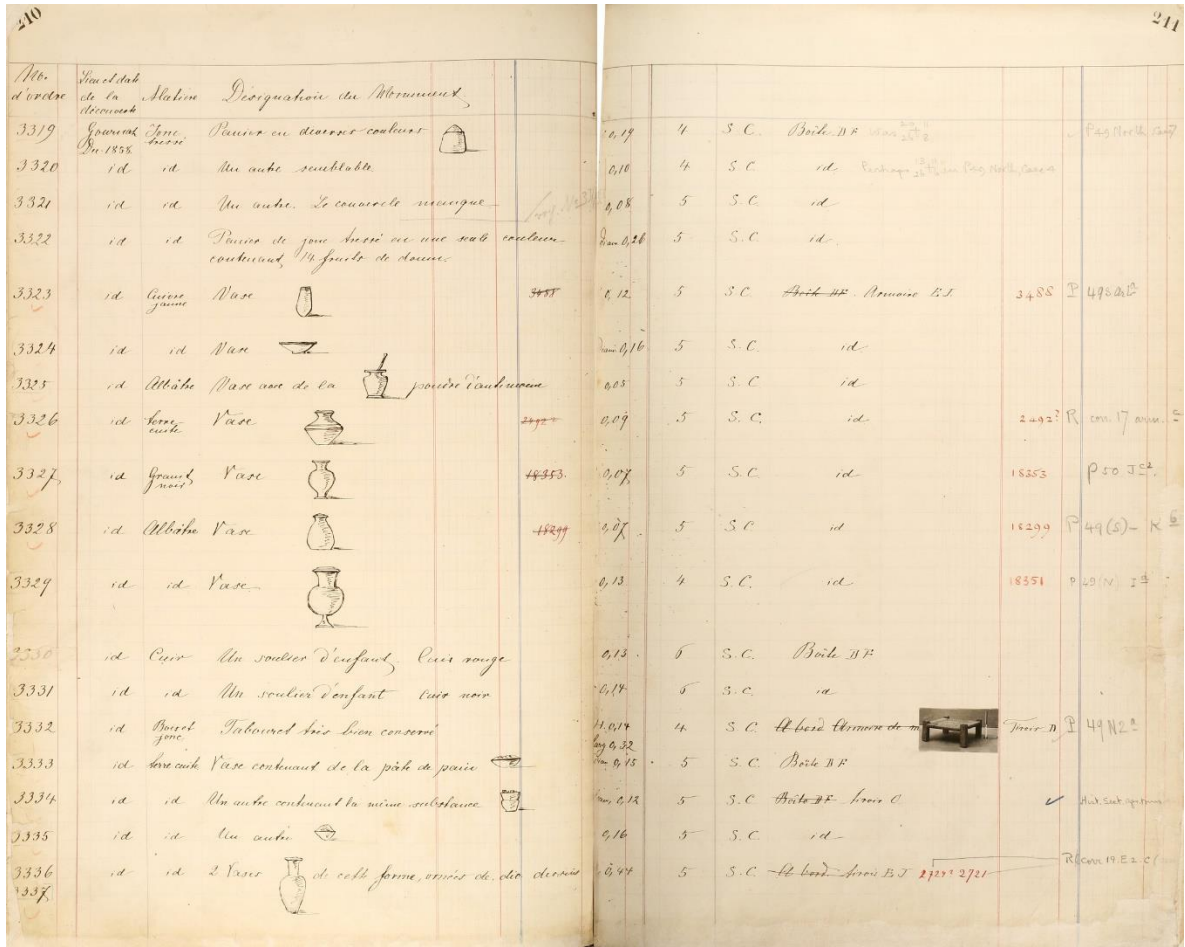 210
211
No. d'ordre Lieu et date de la découverte Matière Désignation du Monument
3319 Gournah Dre. 1858 Jonc tressé Panier en diverses couleurs 0,19 4 S.C. Boîte DF
3320 id id Un autre semblable. 0,10 4 S.C id Perhaps in P29 North, Case
3321 id id Un autre. Le couvercle manque 0,08 5 S.C. id
3322 id id Panier de jonc tressé en une seule couleur Diam 0,26 5 S.C. id.
contenant 14 fruits de doum.
3323 id Cuivre jaune Vase 3488 0,12 5 S.C. Boîte DF. Armoire EJ. 3488 P 49
3324 id id Vase Diam 0,16 5 S.C. id
3325 id Albâtre Vase avec de la poudre d'antimoine 0,05 5 S.C id
3326 id terre cuite Vase 2492 0,09 5 S.C. id 2492? R corr. 17 arm. C
3327 id Granit noir Vase 18353. 0,07 5 S.C id 18353 P 50 J
3328 id Albâtre Vase 18299 0,07 5 S.C id 18299 P 49(S) - K 6
3329 id id Vase 0,13 4 S.C. id 18351 P 49(N) I
3330 id Cuir Un soulier d'enfant. Cuir rouge 0,13 6 S.C. Boîte DF
3331 id id Un soulier d'enfant cuir noir 0,14 6 S.C. id
3332 id Bois et jonc Tabouret très bien conservé H. 0,14 larg 0,32 4 S.C. A bord Armoire de m Tiroir D P 49 N2
3333 id terre cuite Vase contenant de la pâte de pain Diam. 0,15 5 S.C. Boîte DF
3334 id id Un autre contenant la même substance Diam. 0,12 5 S.C Boîte DF tiroir O
3335 id id Un autre 0,16 5 S.C id
3336 3337 id id 2 Vases de cette forme, ornés de dessins 0,44 5 S.C. A bord tiroir EJ 2721 R(corr 19. E2 C